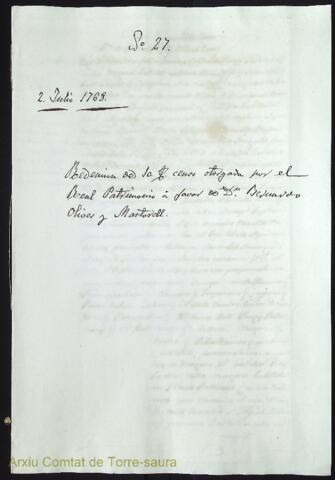 Nº 27.
2. Julio 1768.
Redencion de 10 censo otorgada por el
Real Patrimonio á favor de Dn. Bernardo
Olives y Martorell.
Arxiu Comtat de Torre-saura